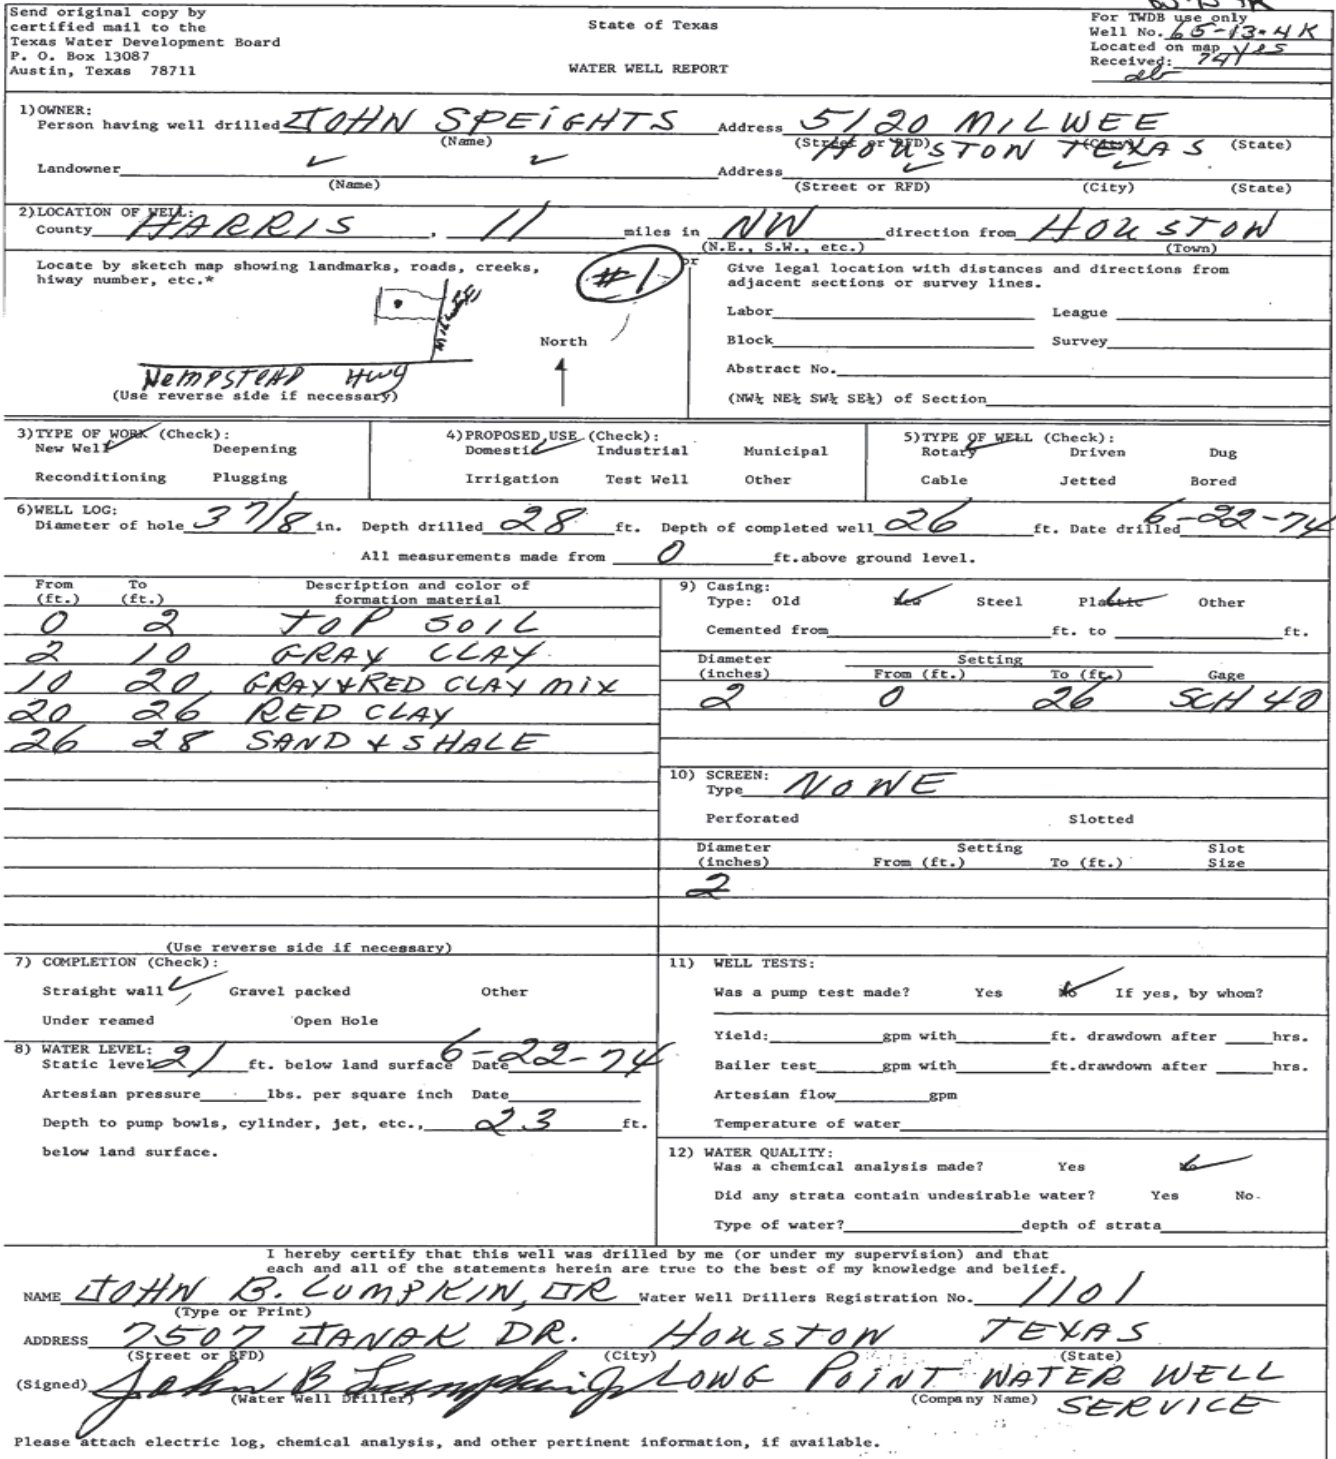 Send original copy by
certified mail to the
Texas Water Development Board
P. O. Box 13087
Austin, Texas 78711
State of Texas
WATER WELL REPORT
For TWDB use only
Well No. 65-13-4K
Located on map yes
Received: 741
1)OWNER:
Person having well drilled JOHN SPEIGHTS Address 5120 MILWEE
(Name) (Street or RFD) (City) (State)
HOUSTON TEXAS
Landowner ✓ ✓ Address ✓ ✓
(Name) (Street or RFD) (City) (State)
2)LOCATION OF WELL:
County HARRIS , 11 miles in NW direction from HOUSTON
(N.E., S.W., etc.) (Town)
Locate by sketch map showing landmarks, roads, creeks,
hiway number, etc.*
#1
North
HEMPSTEAD HWY
(Use reverse side if necessary)
or
Give legal location with distances and directions from
adjacent sections or survey lines.
Labor League
Block Survey
Abstract No.
(NW¼ NE¼ SW¼ SE¼) of Section
3)TYPE OF WORK (Check):
New Well ✓ Deepening
Reconditioning Plugging
4)PROPOSED USE (Check):
Domestic ✓ Industrial Municipal
Irrigation Test Well Other
5)TYPE OF WELL (Check):
Rotary ✓ Driven Dug
Cable Jetted Bored
6)WELL LOG:
Diameter of hole 3 7/8 in. Depth drilled 28 ft. Depth of completed well 26 ft. Date drilled 6-22-74
All measurements made from 0 ft.above ground level.
From (ft.) To (ft.) Description and color of formation material
0 2 TOP SOIL
2 10 GRAY CLAY
10 20 GRAY+RED CLAY MIX
20 26 RED CLAY
26 28 SAND + SHALE
(Use reverse side if necessary)
9) Casing:
Type: Old New ✓ Steel Plastic ✓ Other
Cemented from ft. to ft.
Diameter (inches) Setting From (ft.) To (ft.) Gage
2 0 26 SCH 40
10) SCREEN:
Type NONE
Perforated Slotted
Diameter (inches) Setting From (ft.) To (ft.) Slot Size
2
7) COMPLETION (Check):
Straight wall ✓ Gravel packed Other
Under reamed Open Hole
8) WATER LEVEL:
Static level 21 ft. below land surface Date 6-22-74
Artesian pressure lbs. per square inch Date
Depth to pump bowls, cylinder, jet, etc., 23 ft.
below land surface.
11) WELL TESTS:
Was a pump test made? Yes No ✓ If yes, by whom?
Yield: gpm with ft. drawdown after hrs.
Bailer test gpm with ft.drawdown after hrs.
Artesian flow gpm
Temperature of water
12) WATER QUALITY:
Was a chemical analysis made? Yes No ✓
Did any strata contain undesirable water? Yes No
Type of water? depth of strata
I hereby certify that this well was drilled by me (or under my supervision) and that
each and all of the statements herein are true to the best of my knowledge and belief.
NAME JOHN B. LUMPKIN, JR Water Well Drillers Registration No. 1101
(Type or Print)
ADDRESS 7507 JANAK DR. HOUSTON TEXAS
(Street or RFD) (City) (State)
(Signed) John B Lumpkin Jr LONG POINT WATER WELL
(Water Well Driller) (Company Name) SERVICE
Please attach electric log, chemical analysis, and other pertinent information, if available.